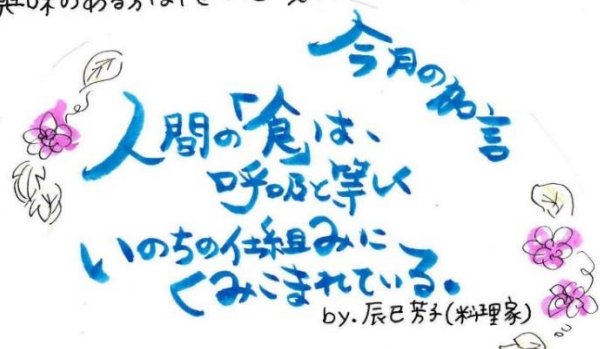 興味のある方は
今月の名言
人間の「食」は、
呼吸と等しく
いのちの仕組みに
くみこまれている。
by.辰巳芳子(料理家)